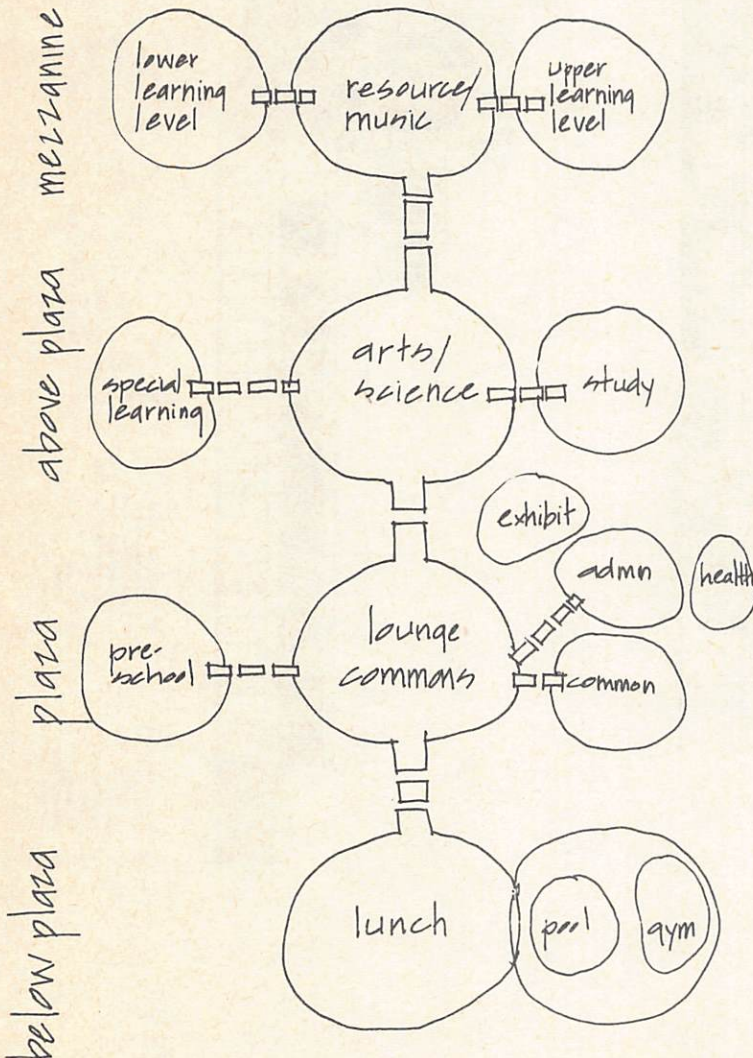 mezzanine
lower
learning
level
resource/
music
upper
learning
level
above plaza
special
learning
arts/
science
study
exhibit
admn
health
plaza
pre-
school
lounge
commons
common
below plaza
lunch
pool
gym